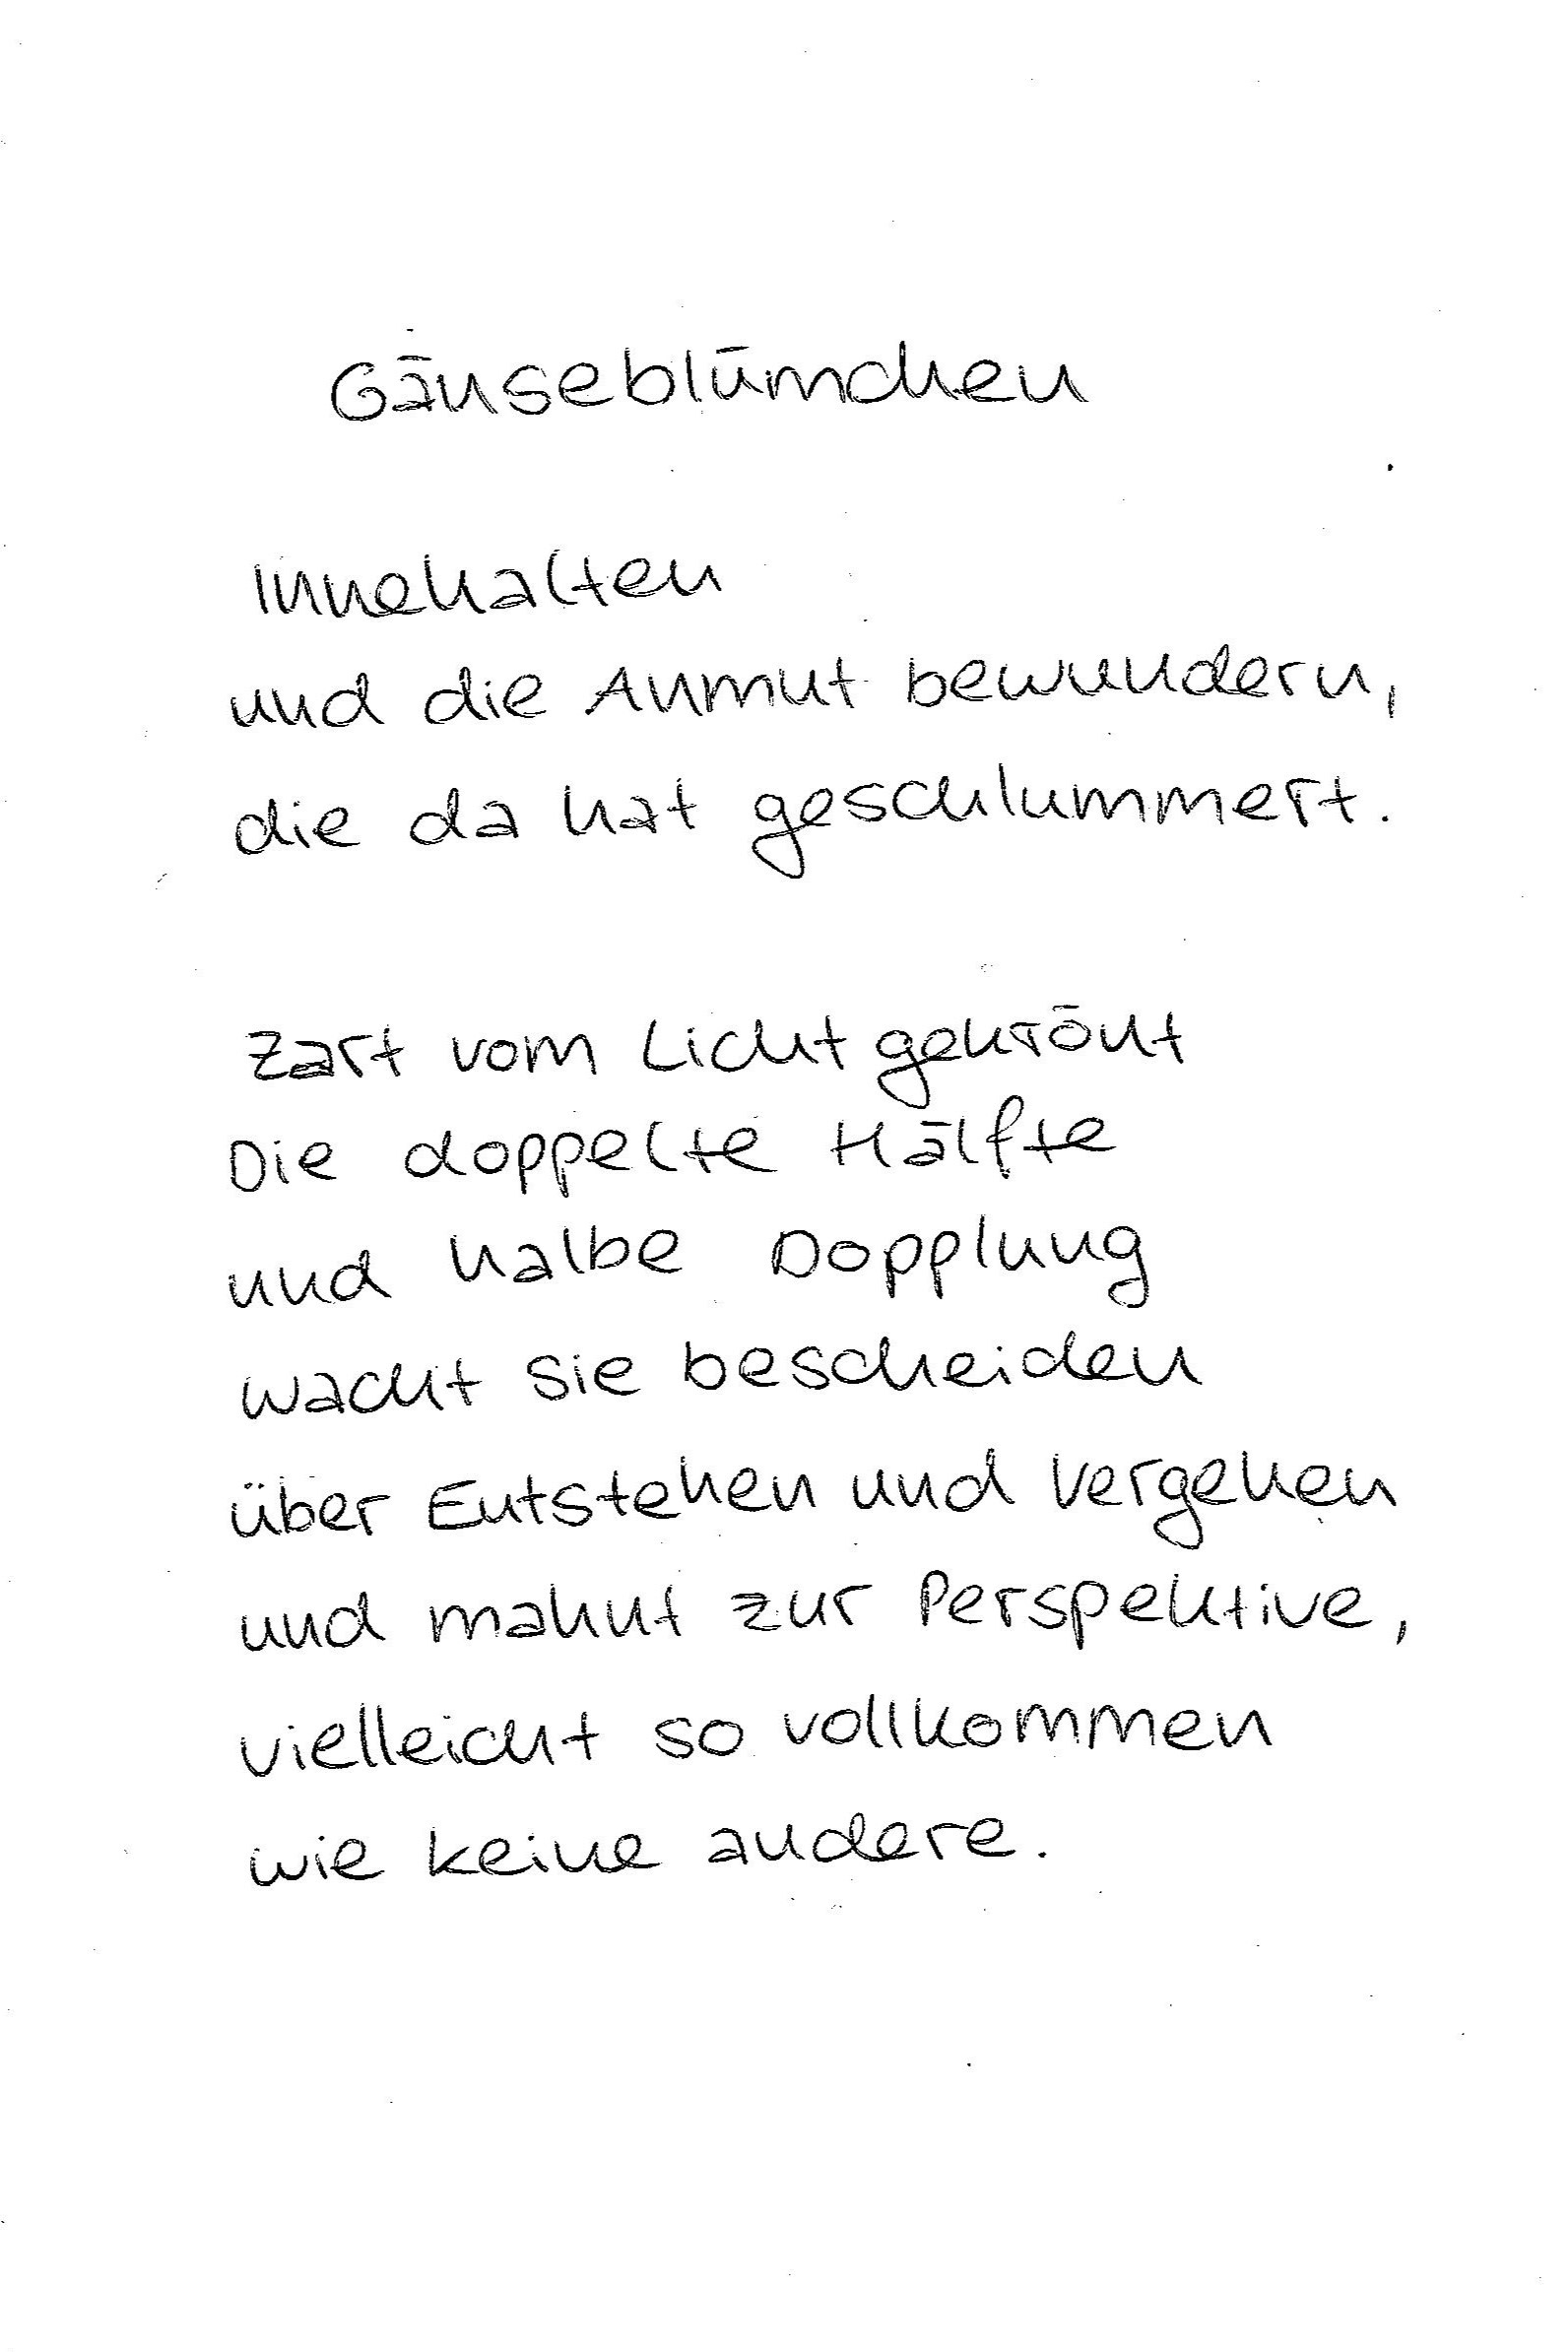 Gänseblümchen
Innehalten
und die Anmut bewundern,
die da hat geschlummert.
Zart vom Licht gekrönt
Die doppelte Hälfte
und halbe Dopplung
wacht sie bescheiden
über Entstehen und Vergehen
und mahnt zur Perspektive,
vielleicht so vollkommen
wie keine andere.